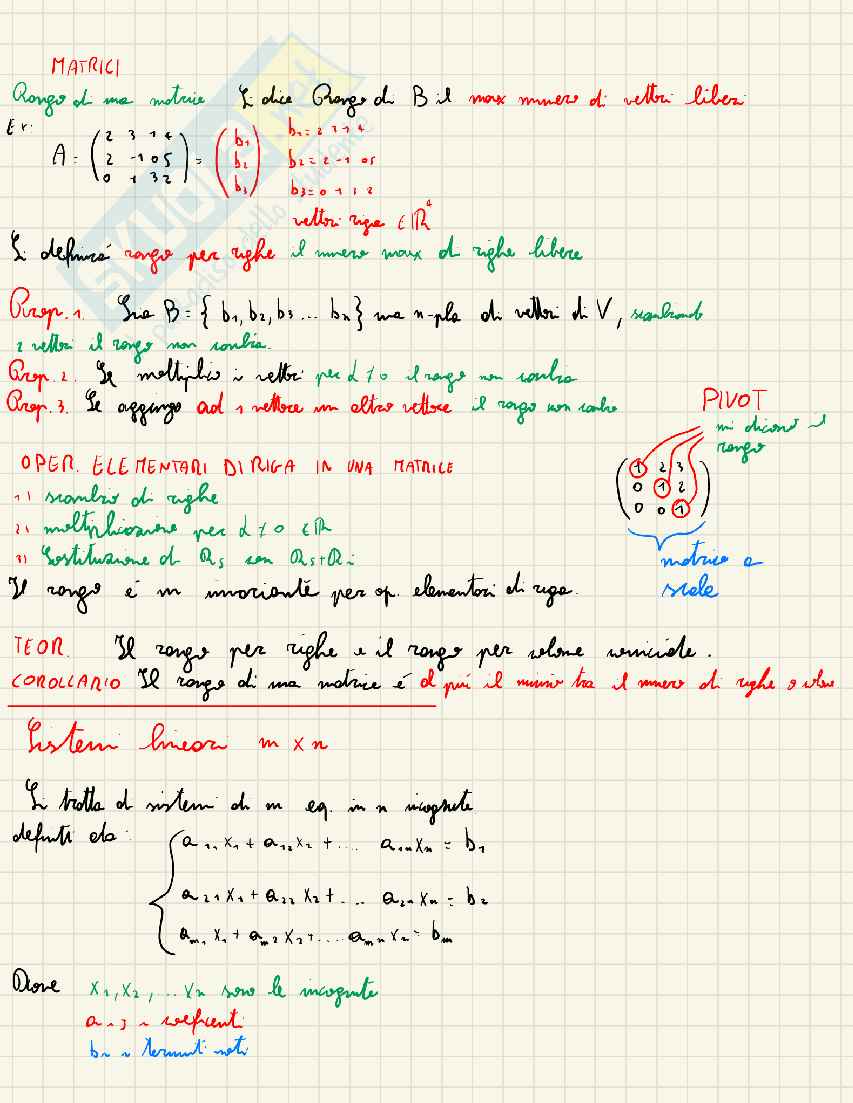 MATRICI
Rango di una matrice Si dice Rango di B il max numero di vettori liberi
Es:
A = ( 2 3 1 4 ) = ( b1 ) b1 = 2 3 1 4
( 2 -1 0 5 ) ( b2 ) b2 = 2 -1 0 5
( 0 1 3 2 ) ( b3 ) b3 = 0 1 3 2
vettori riga ∈ ℝ⁴
Si definirá rango per righe il numero max di righe libere
Prop. 1. Sia B = { b1, b2, b3 ... bn } una n-pla di vettori di V, scambiando
2 vettori il rango non cambia.
Prop. 2. Se moltiplico i vettori per α ≠ 0 il rango non cambia
Prop. 3. Se aggiungo ad 1 vettore un altro vettore il rango non cambia
PIVOT
mi dicono il
rango
OPER. ELEMENTARI DI RIGA IN UNA MATRICE
1) scambio di righe
2) moltiplicazione per α ≠ 0 ∈ ℝ
3) Sostituzione di Rs con Rs+Ri
( 1 2 3 )
( 0 1 2 )
( 0 0 1 )
matrice a
scale
Il rango é un invariante per op. elementari di riga.
TEOR. Il rango per righe e il rango per colonne coincide.
COROLLARIO Il rango di una matrice é al piú il minimo tra il numero di righe o colonne
Sistemi lineari m x n
Si tratta di sistemi di m eq. in n incognite
definiti da:
a11 x1 + a12 x2 + .... a1n xn = b1
a21 x1 + a22 x2 + ... a2n xn = b2
am1 x1 + am2 x2 + ... amn xn = bm
Dove x1, x2, ... xn sono le incognite
a i j i coefficienti
bi i termini noti
SKUOLA.net
paradiso dello studente